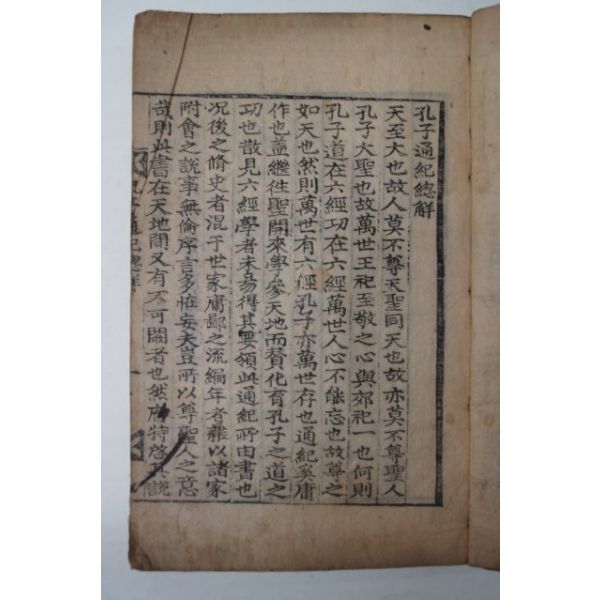 孔子通紀總解
天至大也故人莫不尊天聖同天也故亦莫不尊聖人
孔子大聖也故萬世王祀至敬之心與郊祀一也何則
孔子道在六經功在六經萬世人心不能忘也故尊之
如天也然則萬世有六經孔子亦萬世存也通紀奚庸
作也蓋繼徃聖開來學參天地而賛化育孔子之道之
功也散見六經學者未易得其要領此通紀所由書也
况後之脩史者混于世家庸鄙之流編年者雜以諸家
附會之說事無倫序言多恠妄夫豈所以尊聖人之意
哉則此書在天地間又有不可闕者也然 特啓其說
子通紀總解